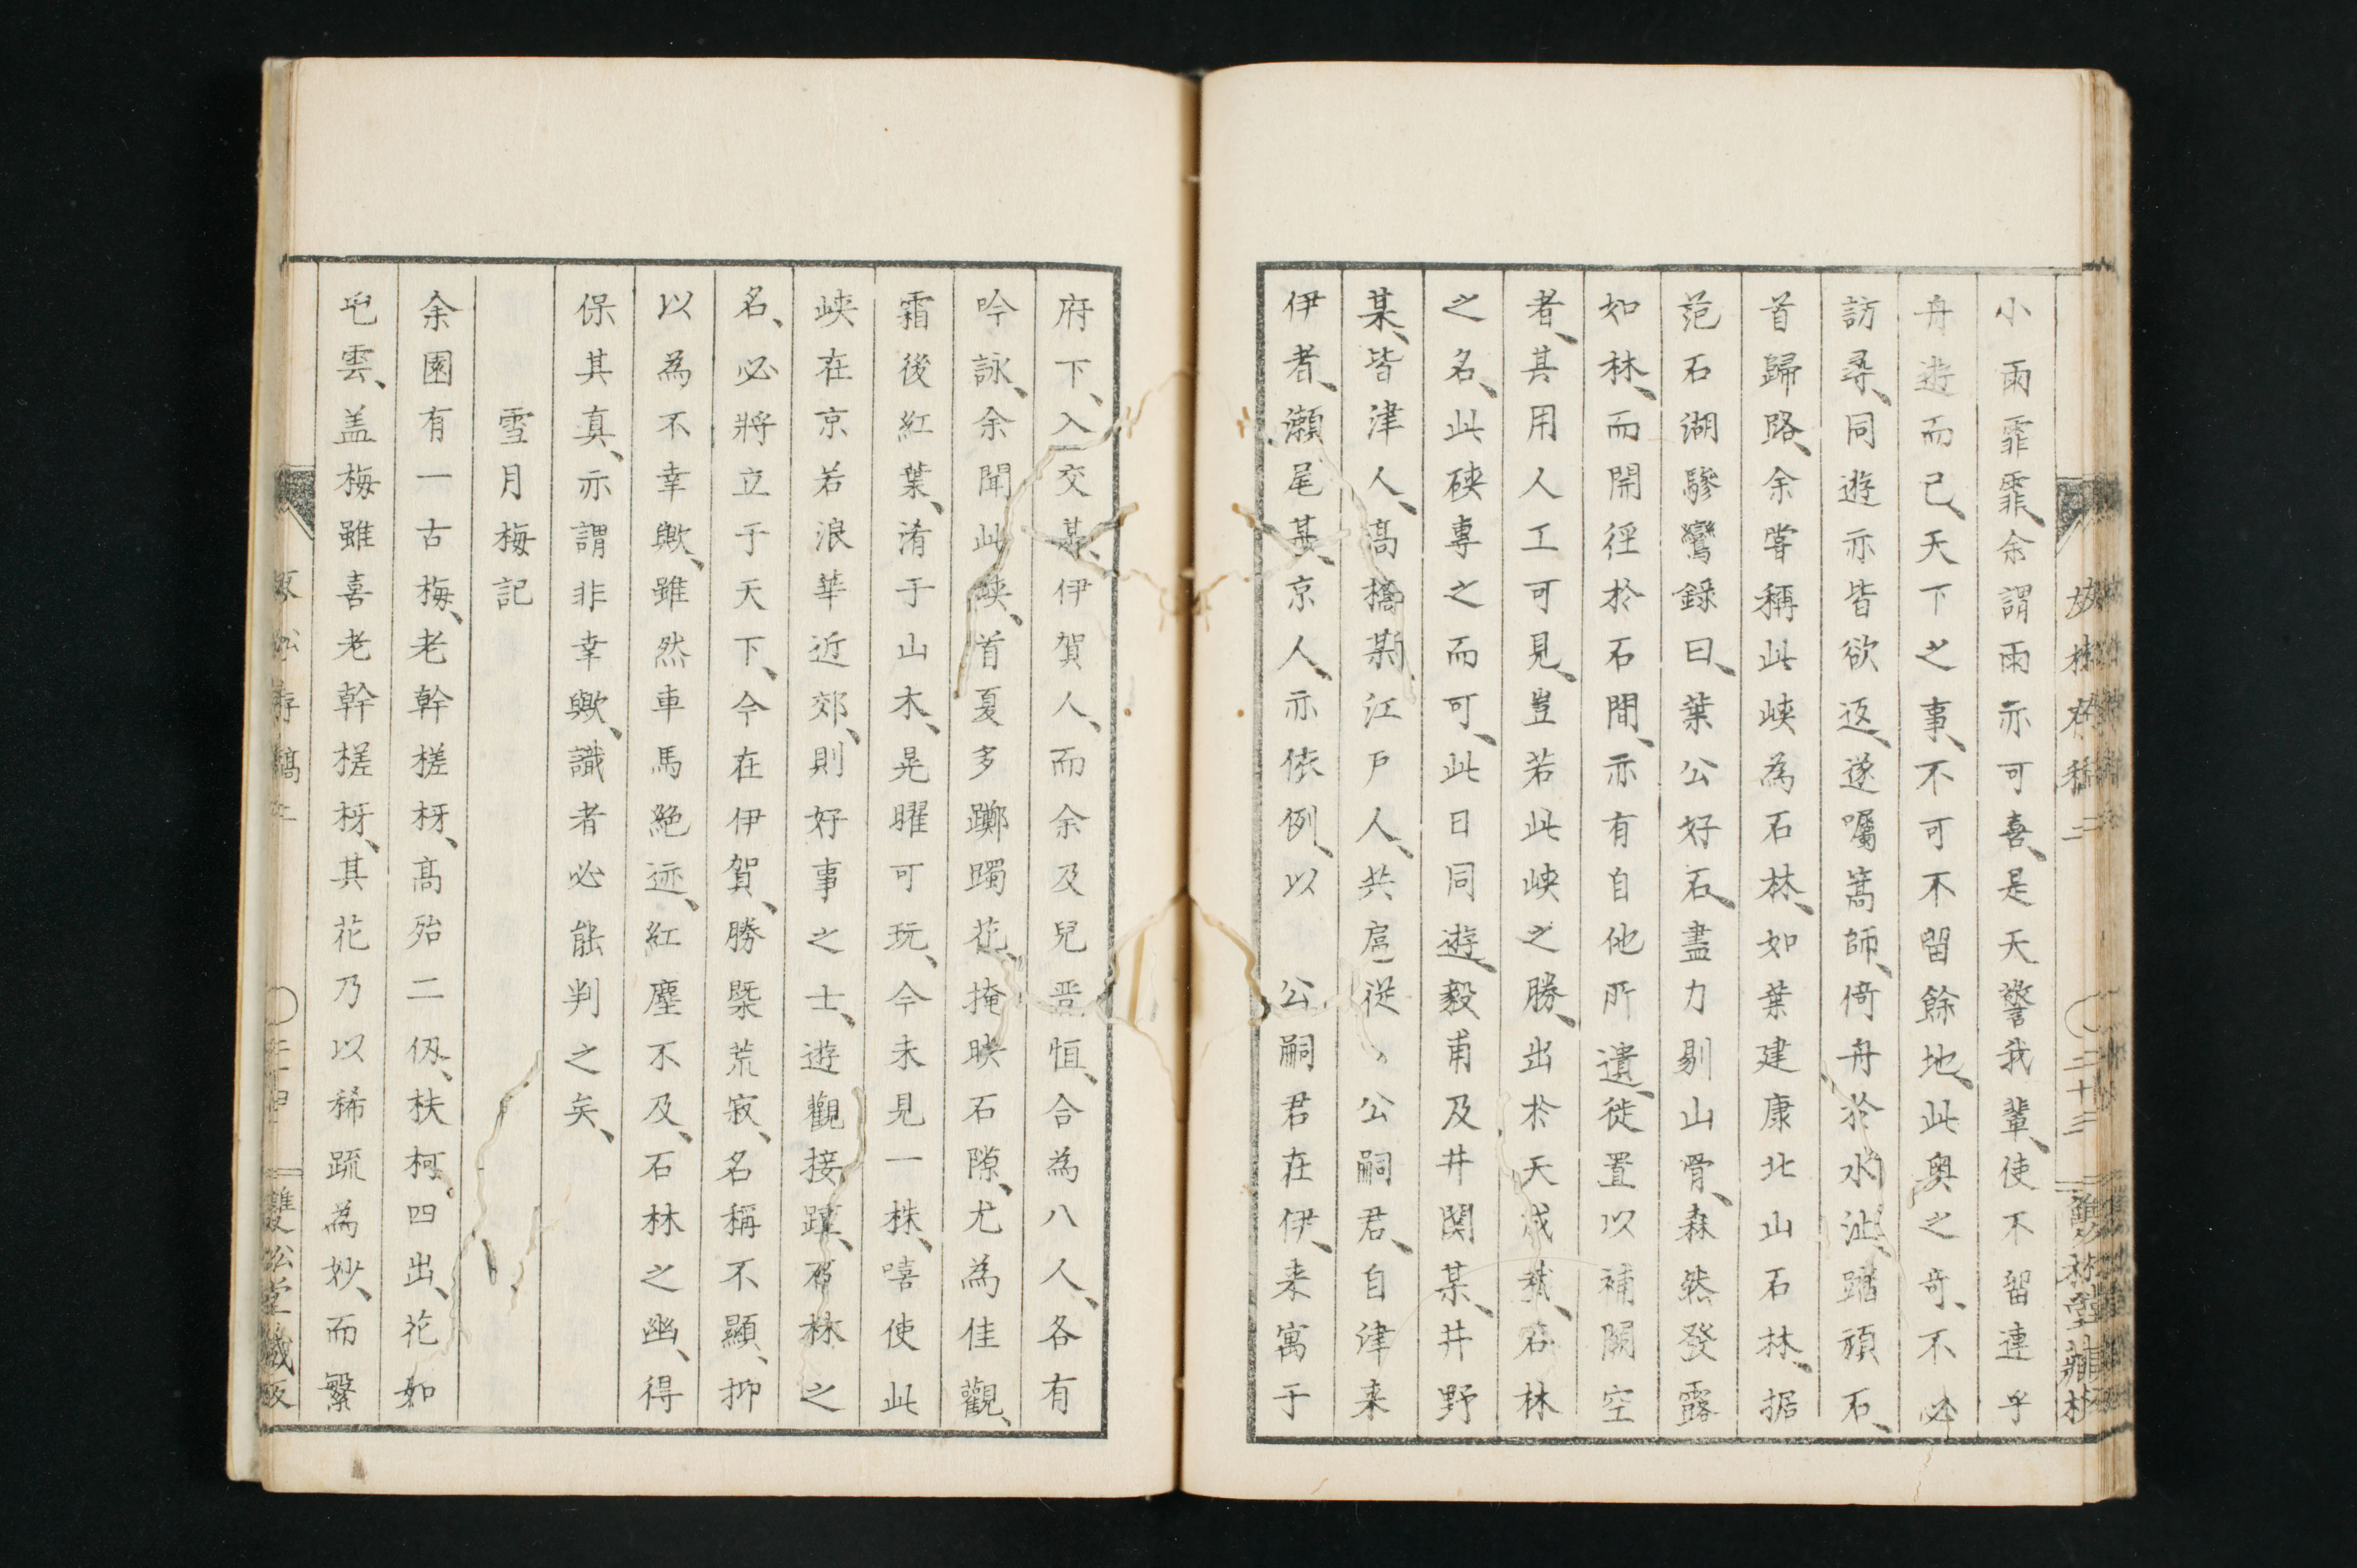 小雨霏霏、余謂雨亦可喜、是天警我輩、使不留連乎
舟遊而已、天下之事、不可不留餘地、此奥之奇、不必
訪尋、同遊亦皆欲返、遂囑篙師、倚舟於水沚、踏頑石、
首歸路、余嘗稱此峽為石林、如葉建康北山石林、据
范石湖驂鸞錄曰、葉公好石、盡力剔山骨、森然發露
如林、而開徑於石間、亦有自他所遺、徙置以補闕空
者、其用人工可見、豈若此峽之勝、出於天成哉、石林
之名、此硤專之而可、此日同遊、毅甫及井関某、井野
某、皆津人、高橋某、江戸人、共扈從、公嗣君、自津来
伊者、瀬尾某、京人、亦依例、以　公嗣君在伊、来寓于
府下、入交某、伊賀人、而余及兒晋恒、合為八人、各有
吟詠、余聞此峽、首夏多躑躅花、掩映石隙、尤為佳觀、
霜後紅葉、淆于山木、晃曜可玩、今未見一株、嘻使此
峽在京若浪華近郊、則好事之士、遊觀接踵、石林之
名、必將立于天下、今在伊賀、勝槩荒寂、名稱不顯、抑
以為不幸歟、雖然車馬絶迹、紅塵不及、石林之幽、得
保其真、亦謂非幸歟、識者必能判之矣、
雪月梅記
余園有一古梅、老幹槎枒、高殆二仭、枎柯四出、花如
屯雲、盖梅雖喜老幹槎枒、其花乃以稀疏為妙、而繁
雙松堂藏版
二十三